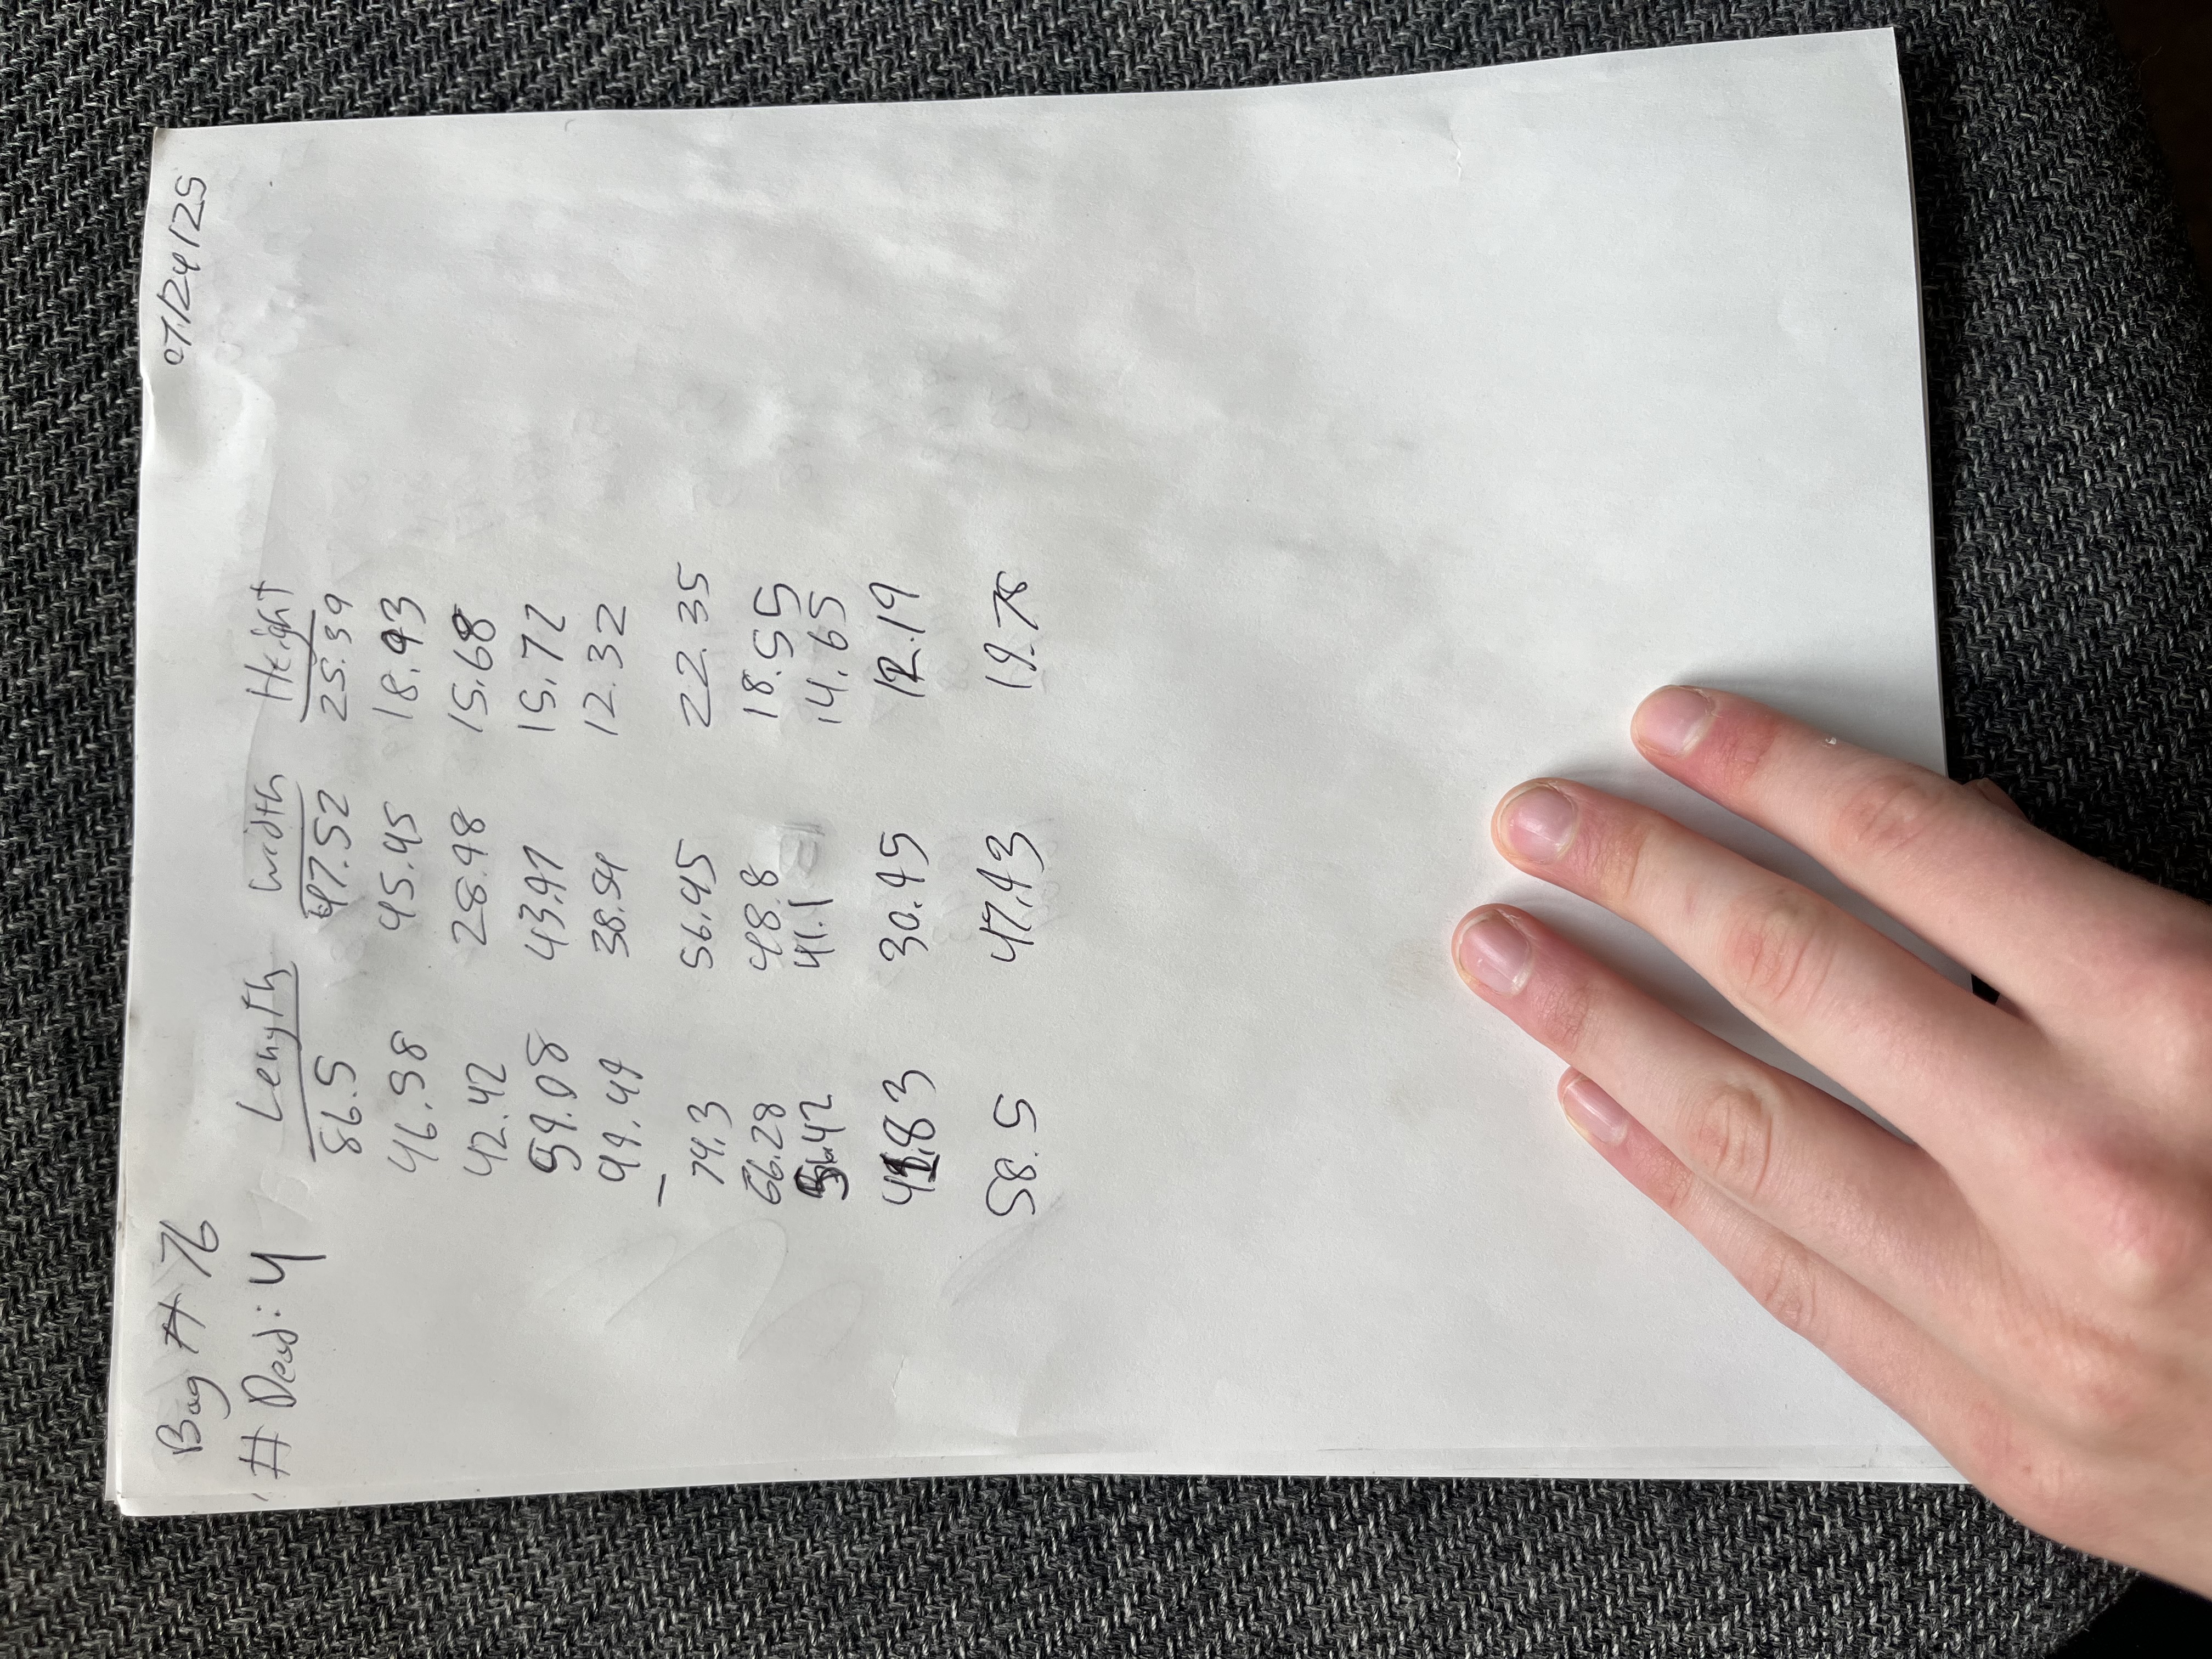 Bag # 76 07/24/25
# Dead: 4 Length Width Height
86.5 47.52 25.39
46.58 45.45 18.93
42.42 28.98 15.68
59.08 43.97 15.72
99.49 38.54 12.32
74.3 56.95 22.35
66.28 48.8 18.55
56.42 41.1 14.65
41.83 30.95 12.19
58.5 47.93 19.78